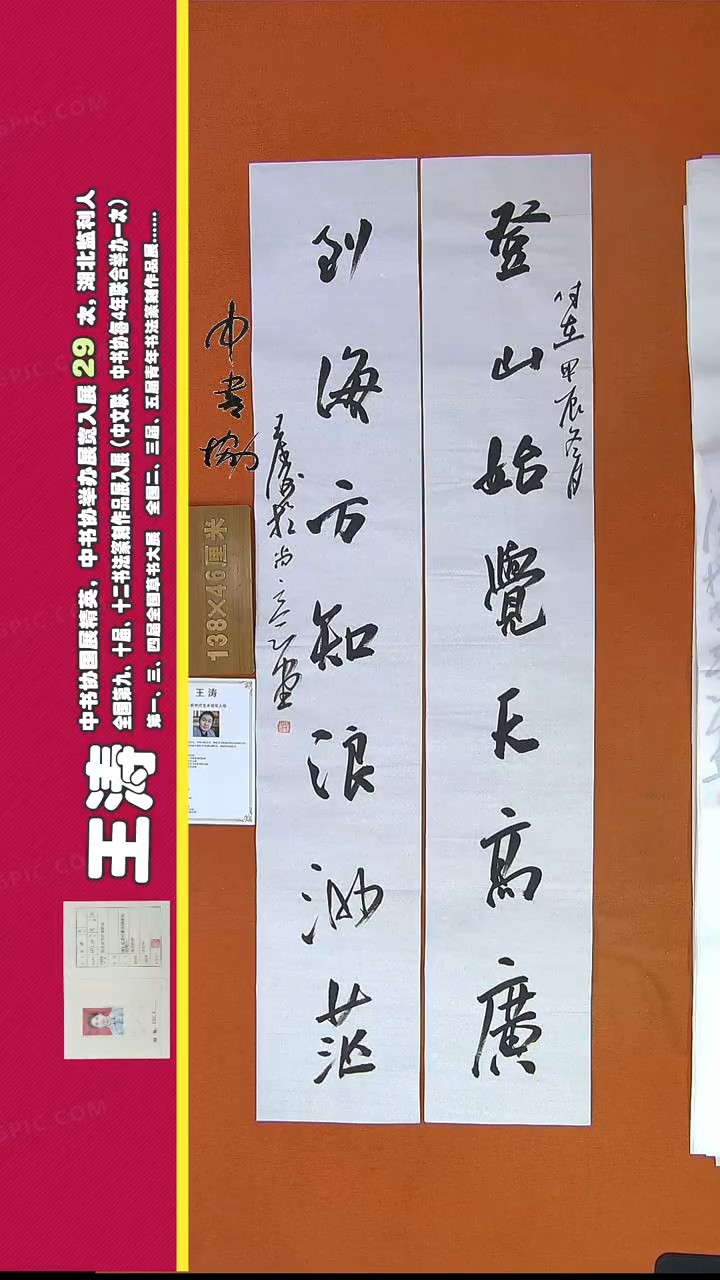 登山始覺天高廣
時在甲辰冬月
到海方知浪渺茫
王涛於尚意堂
中书协
138×46厘米
王涛
王涛
中书协国展精英,中书协举办展览入展 29 次,湖北监利人
全国第九、十届、十二书法篆刻作品展入展(中文联、中书协每4年联合举办一次)
第一、三、四届全国草书大展 全国二、三届、五届青年书法篆刻作品展......